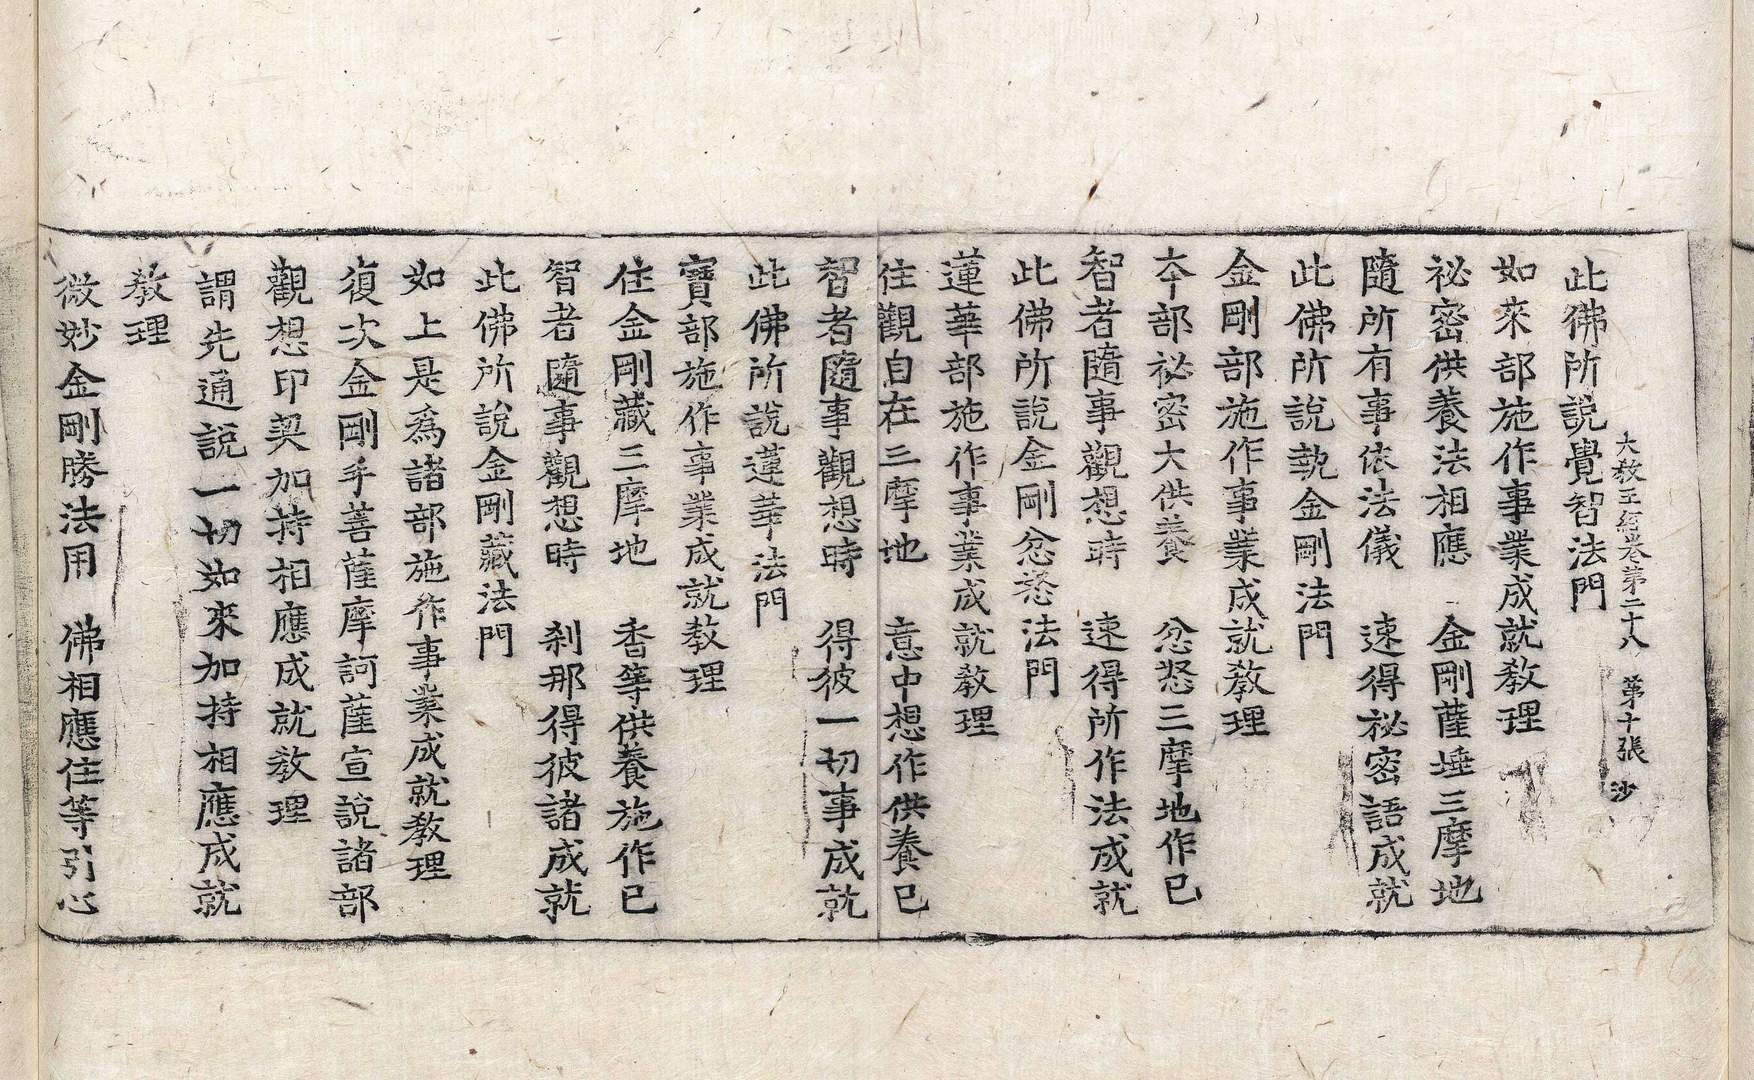 大敎王經卷第二十八　第十張　沙
此佛所說覺智法門
如來部施作事業成就敎理
祕密供養法相應　金剛薩埵三摩地
隨所有事依法儀　速得祕密語成就
此佛所說執金剛法門
金剛部施作事業成就敎理
夲部祕密大供養　忿怒三摩地作已
智者隨事觀想時　速得所作法成就
此佛所說金剛忿怒法門
蓮華部施作事業成就敎理
住觀自在三摩地　意中想作供養已
智者隨事觀想時　得彼一切事成就
此佛所說蓮華法門
寶部施作事業成就敎理
住金剛藏三摩地　香等供養施作已
智者隨事觀想時　刹那得彼諸成就
此佛所說金剛藏法門
如上是爲諸部施作事業成就敎理
復次金剛手菩薩摩訶薩宣說諸部
觀想印契加持相應成就敎理
謂先通說一切如來加持相應成就
敎理
微妙金剛勝法用　佛相應住等引心